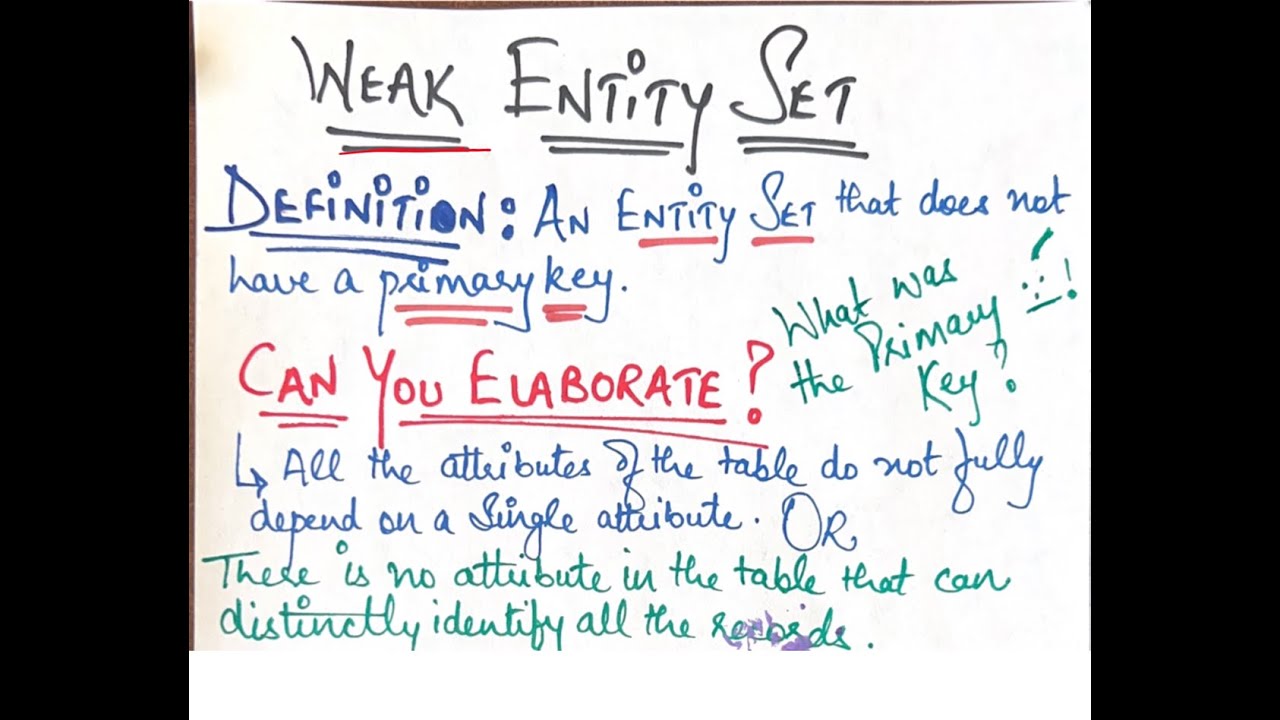 WEAK ENTITY SET
DEFINITION: AN ENTITY SET that does not
have a primary key.
What was
the Primary
Key?
CAN YOU ELABORATE?
↳ All the attributes of the table do not fully
depend on a single attribute. OR
There is no attribute in the table that can
distinctly identify all the records.